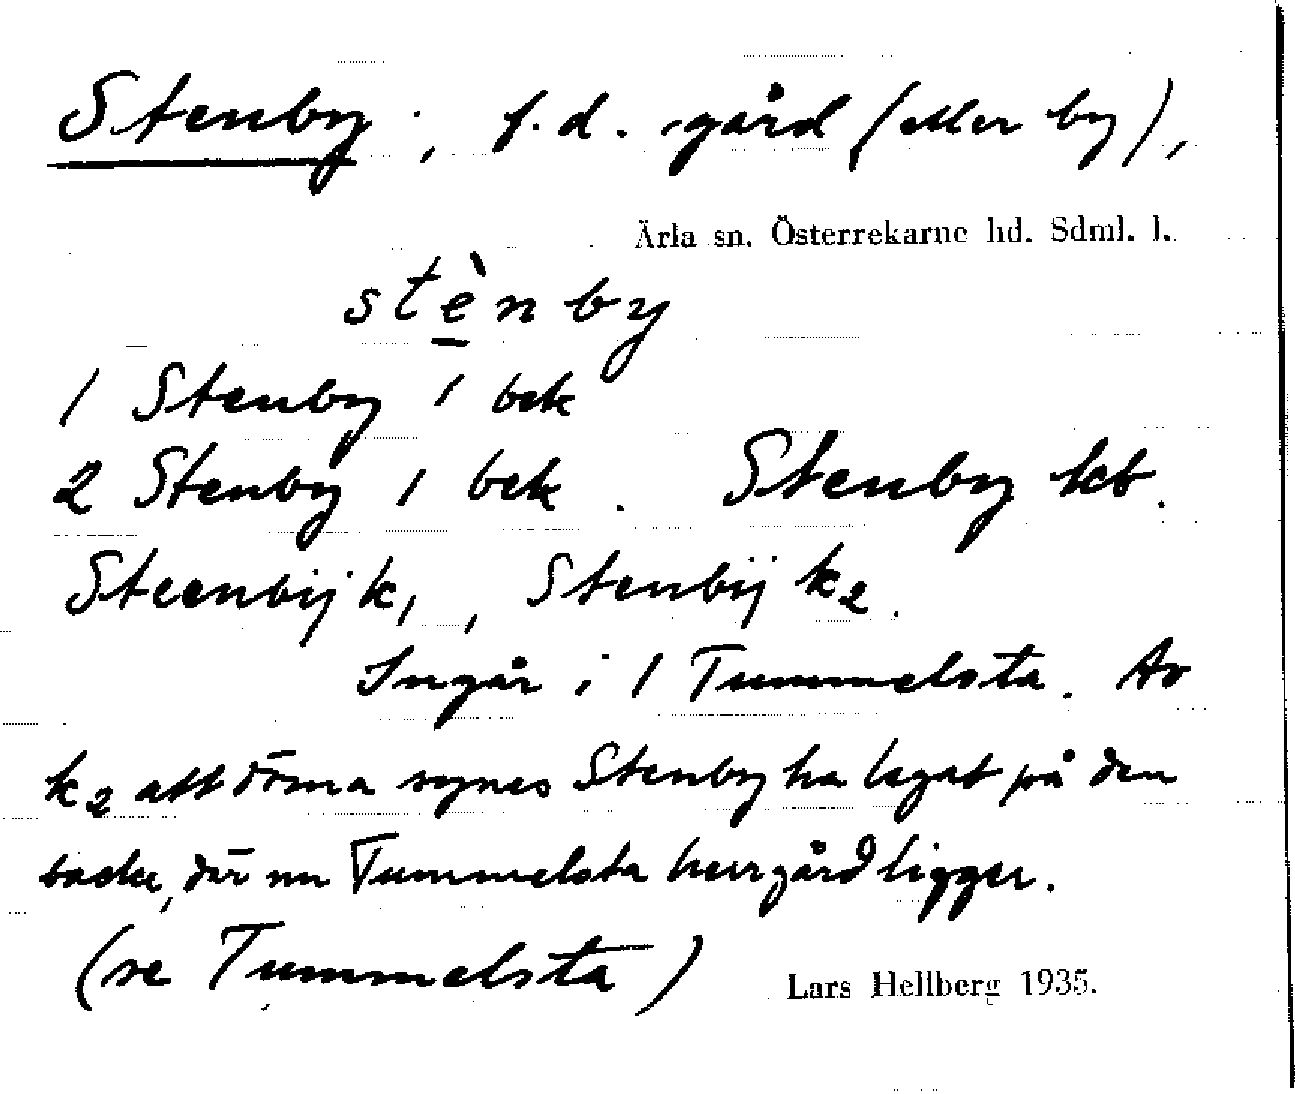 Stenby, f.d. gård (eller by),
Ärla sn. Österrekarne hd. Sdml. l.
stènby
1 Stenby 1 bek
2 Stenby 1 bek. Stenby kb.
Steenbij k1, Stenbij k2.
Ingår i 1 Tummelsta. Av
k2 att döma synes Stenby ha legat på den
backe, där nu Tummelsta herrgård ligger.
(se Tummelsta)
Lars Hellberg 1935.